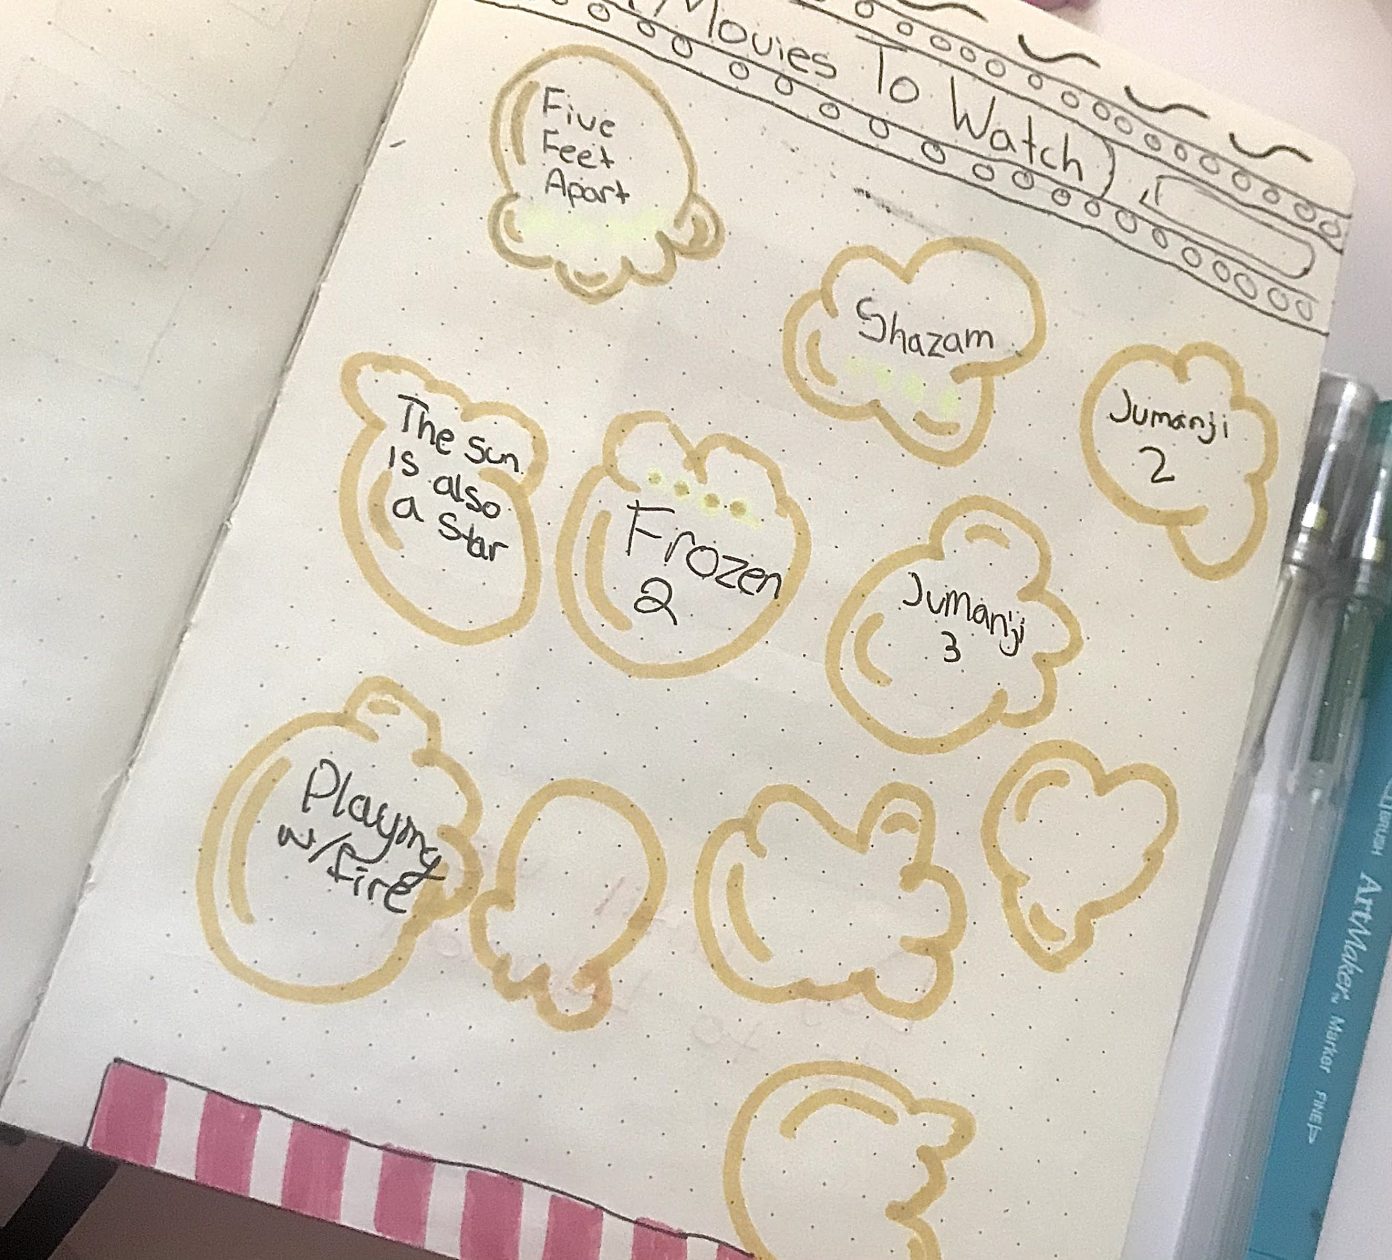 Movies To Watch
Five
Feet
Apart
Shazam
Jumanji
2
The sun
is also
a Star
Frozen
2
Jumanji
3
Playing
w/fire
BRUSH ArtMaker™ Marker FINE